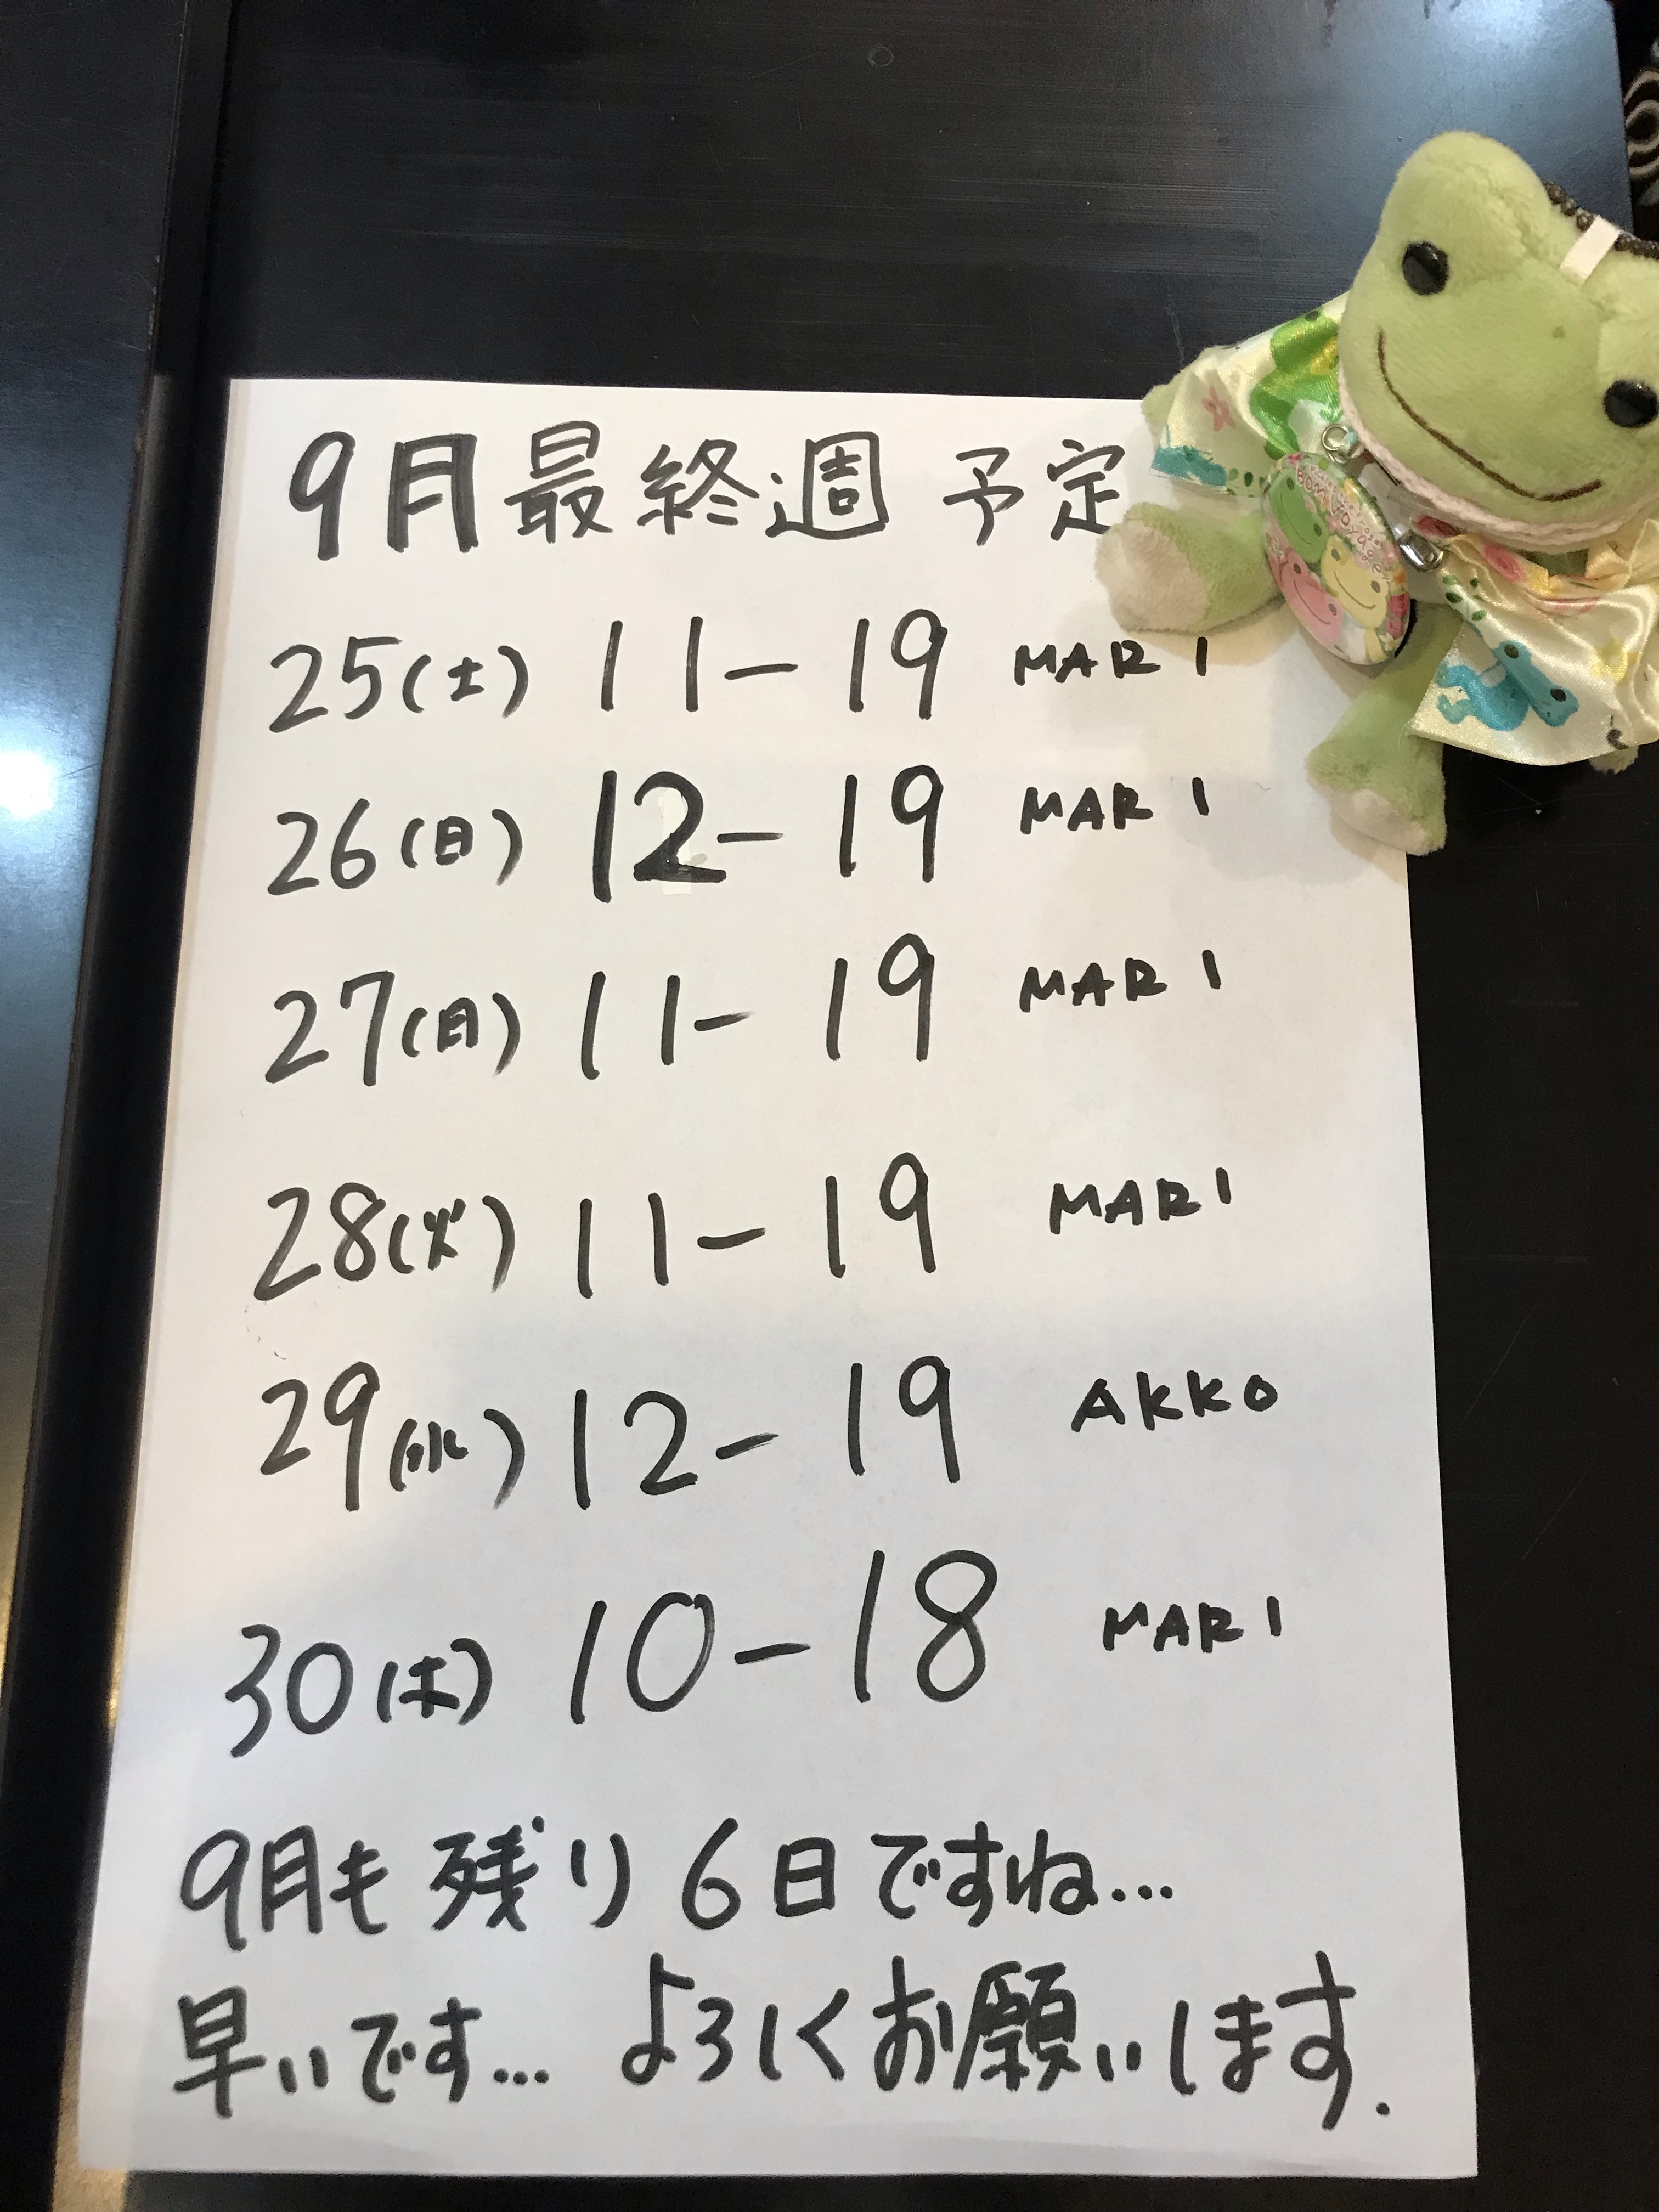 9月最終週 予定
25(土) 11-19 MARI
26(日) 12-19 MARI
27(月) 11-19 MARI
28(火) 11-19 MARI
29(水) 12-19 AKKO
30(木) 10-18 MARI
9月も残り6日ですね...
早いです... よろしくお願いします.